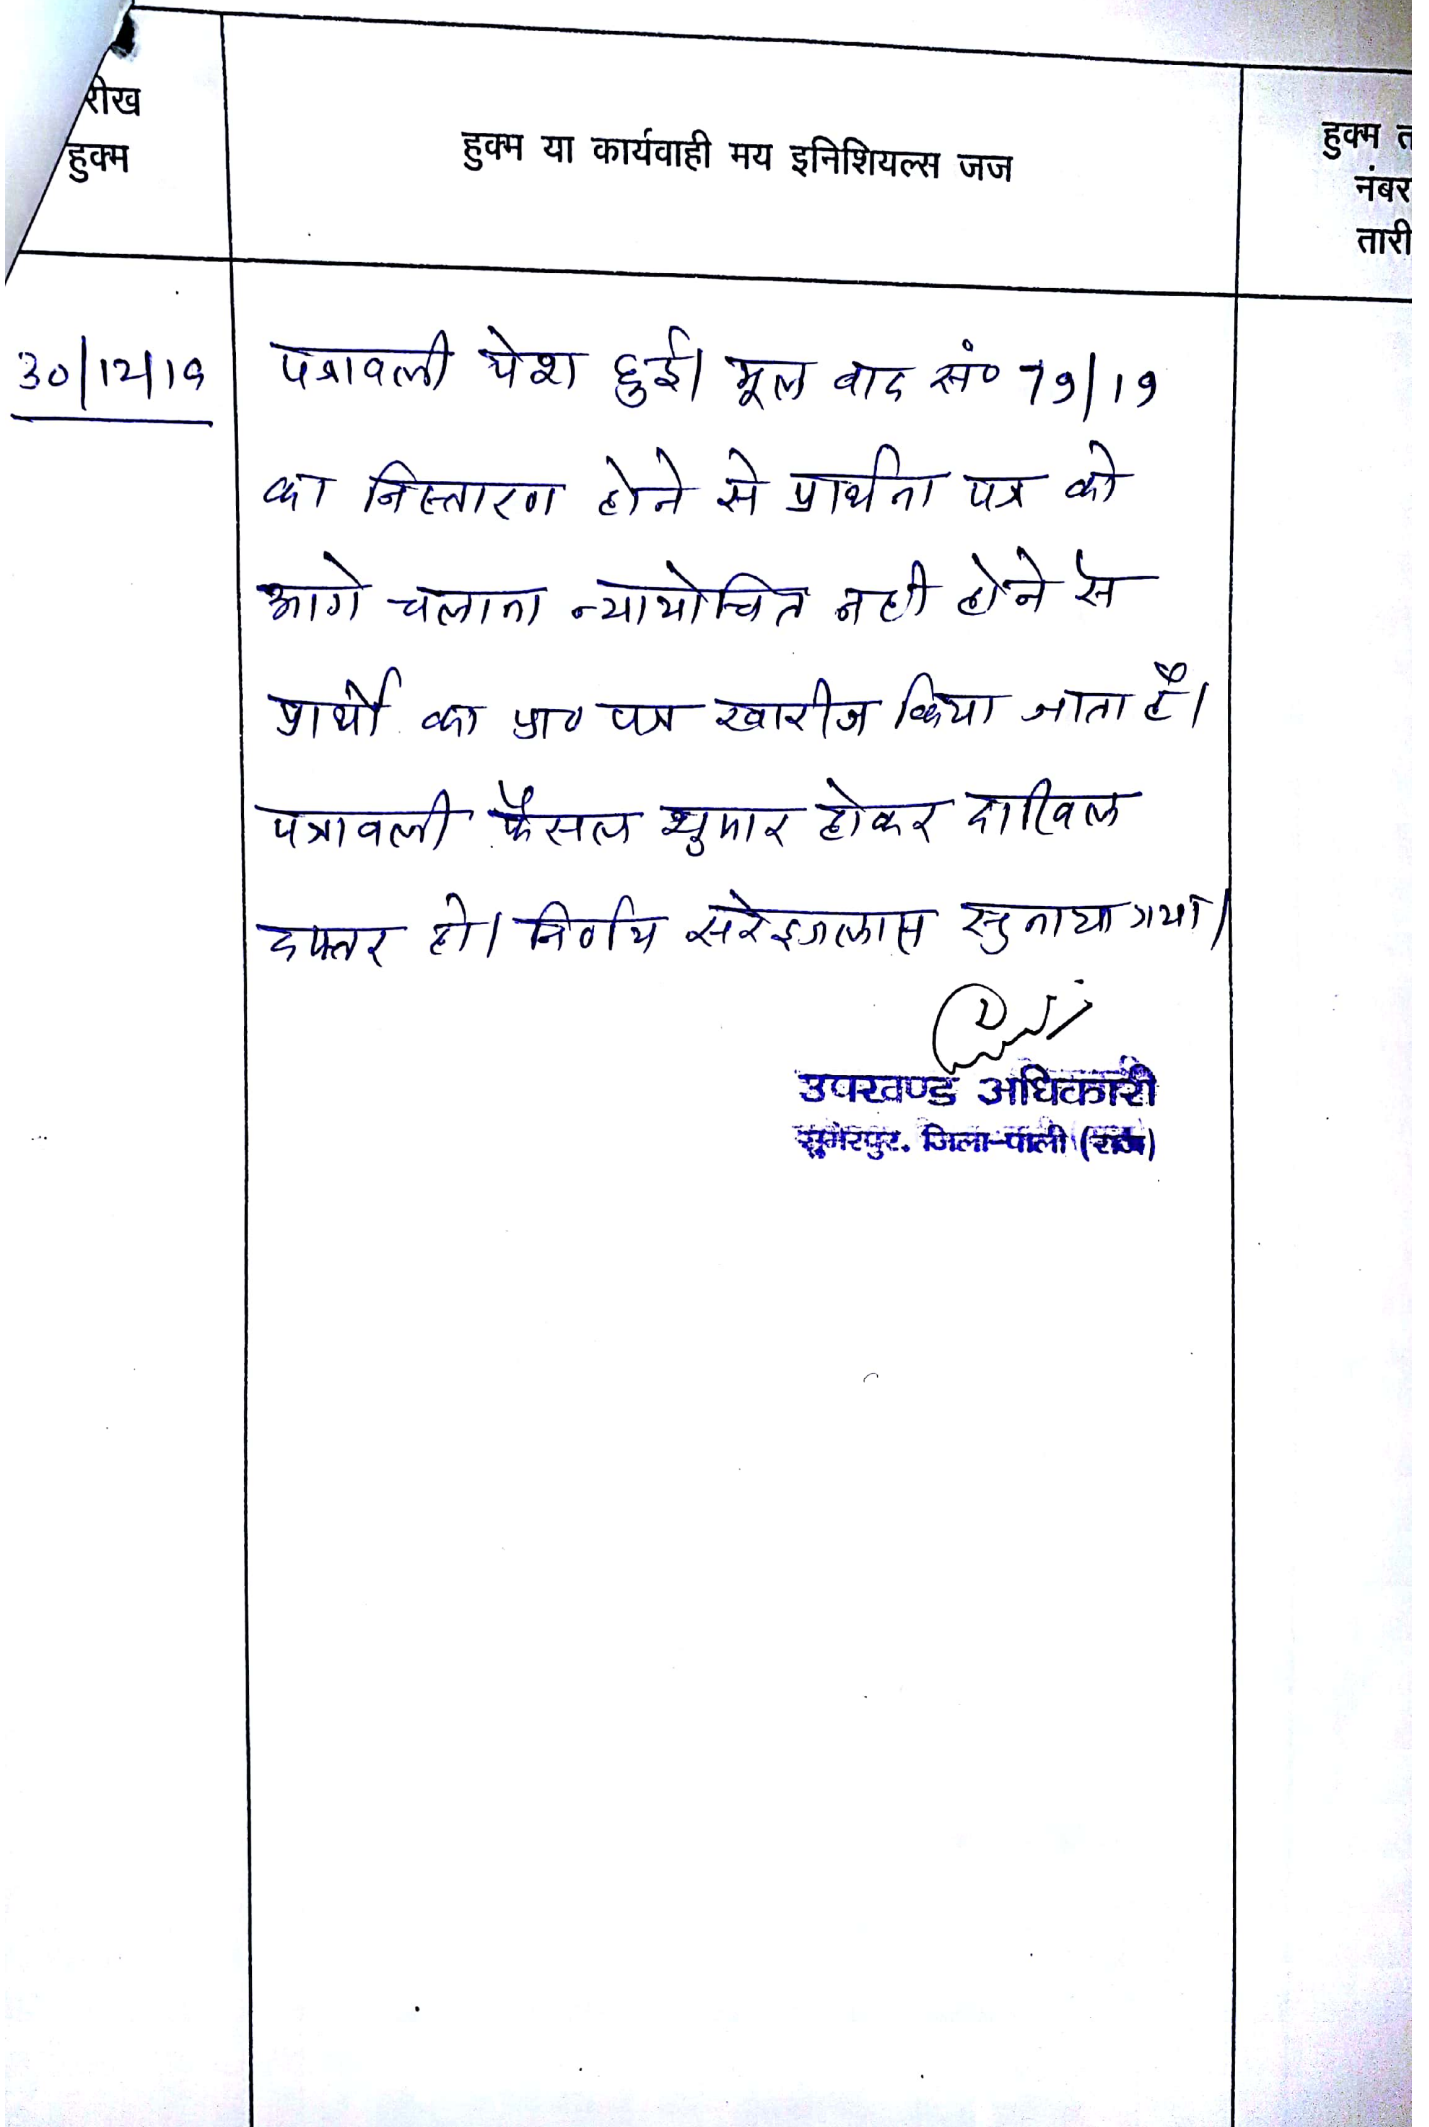 रीख
हुक्म
हुक्म या कार्यवाही मय इनिशियल्स जज
हुक्म त
नंबर
तारी
30/12/19
पत्रावली पेश हुई। मूल वाद सं० 79/19
का निस्तारण होने से प्रार्थना पत्र को
आगे चलाना न्यायोचित नही होने से
प्रार्थी का प्रा० पत्र खारीज किया जाता है।
पत्रावली फैसल शुमार होकर दाखिल
दफ्तर हो। निर्णय सरेइजलास सुनाया गया।
उपखण्ड अधिकारी
सुमेरपुर. जिला-पाली (राज)